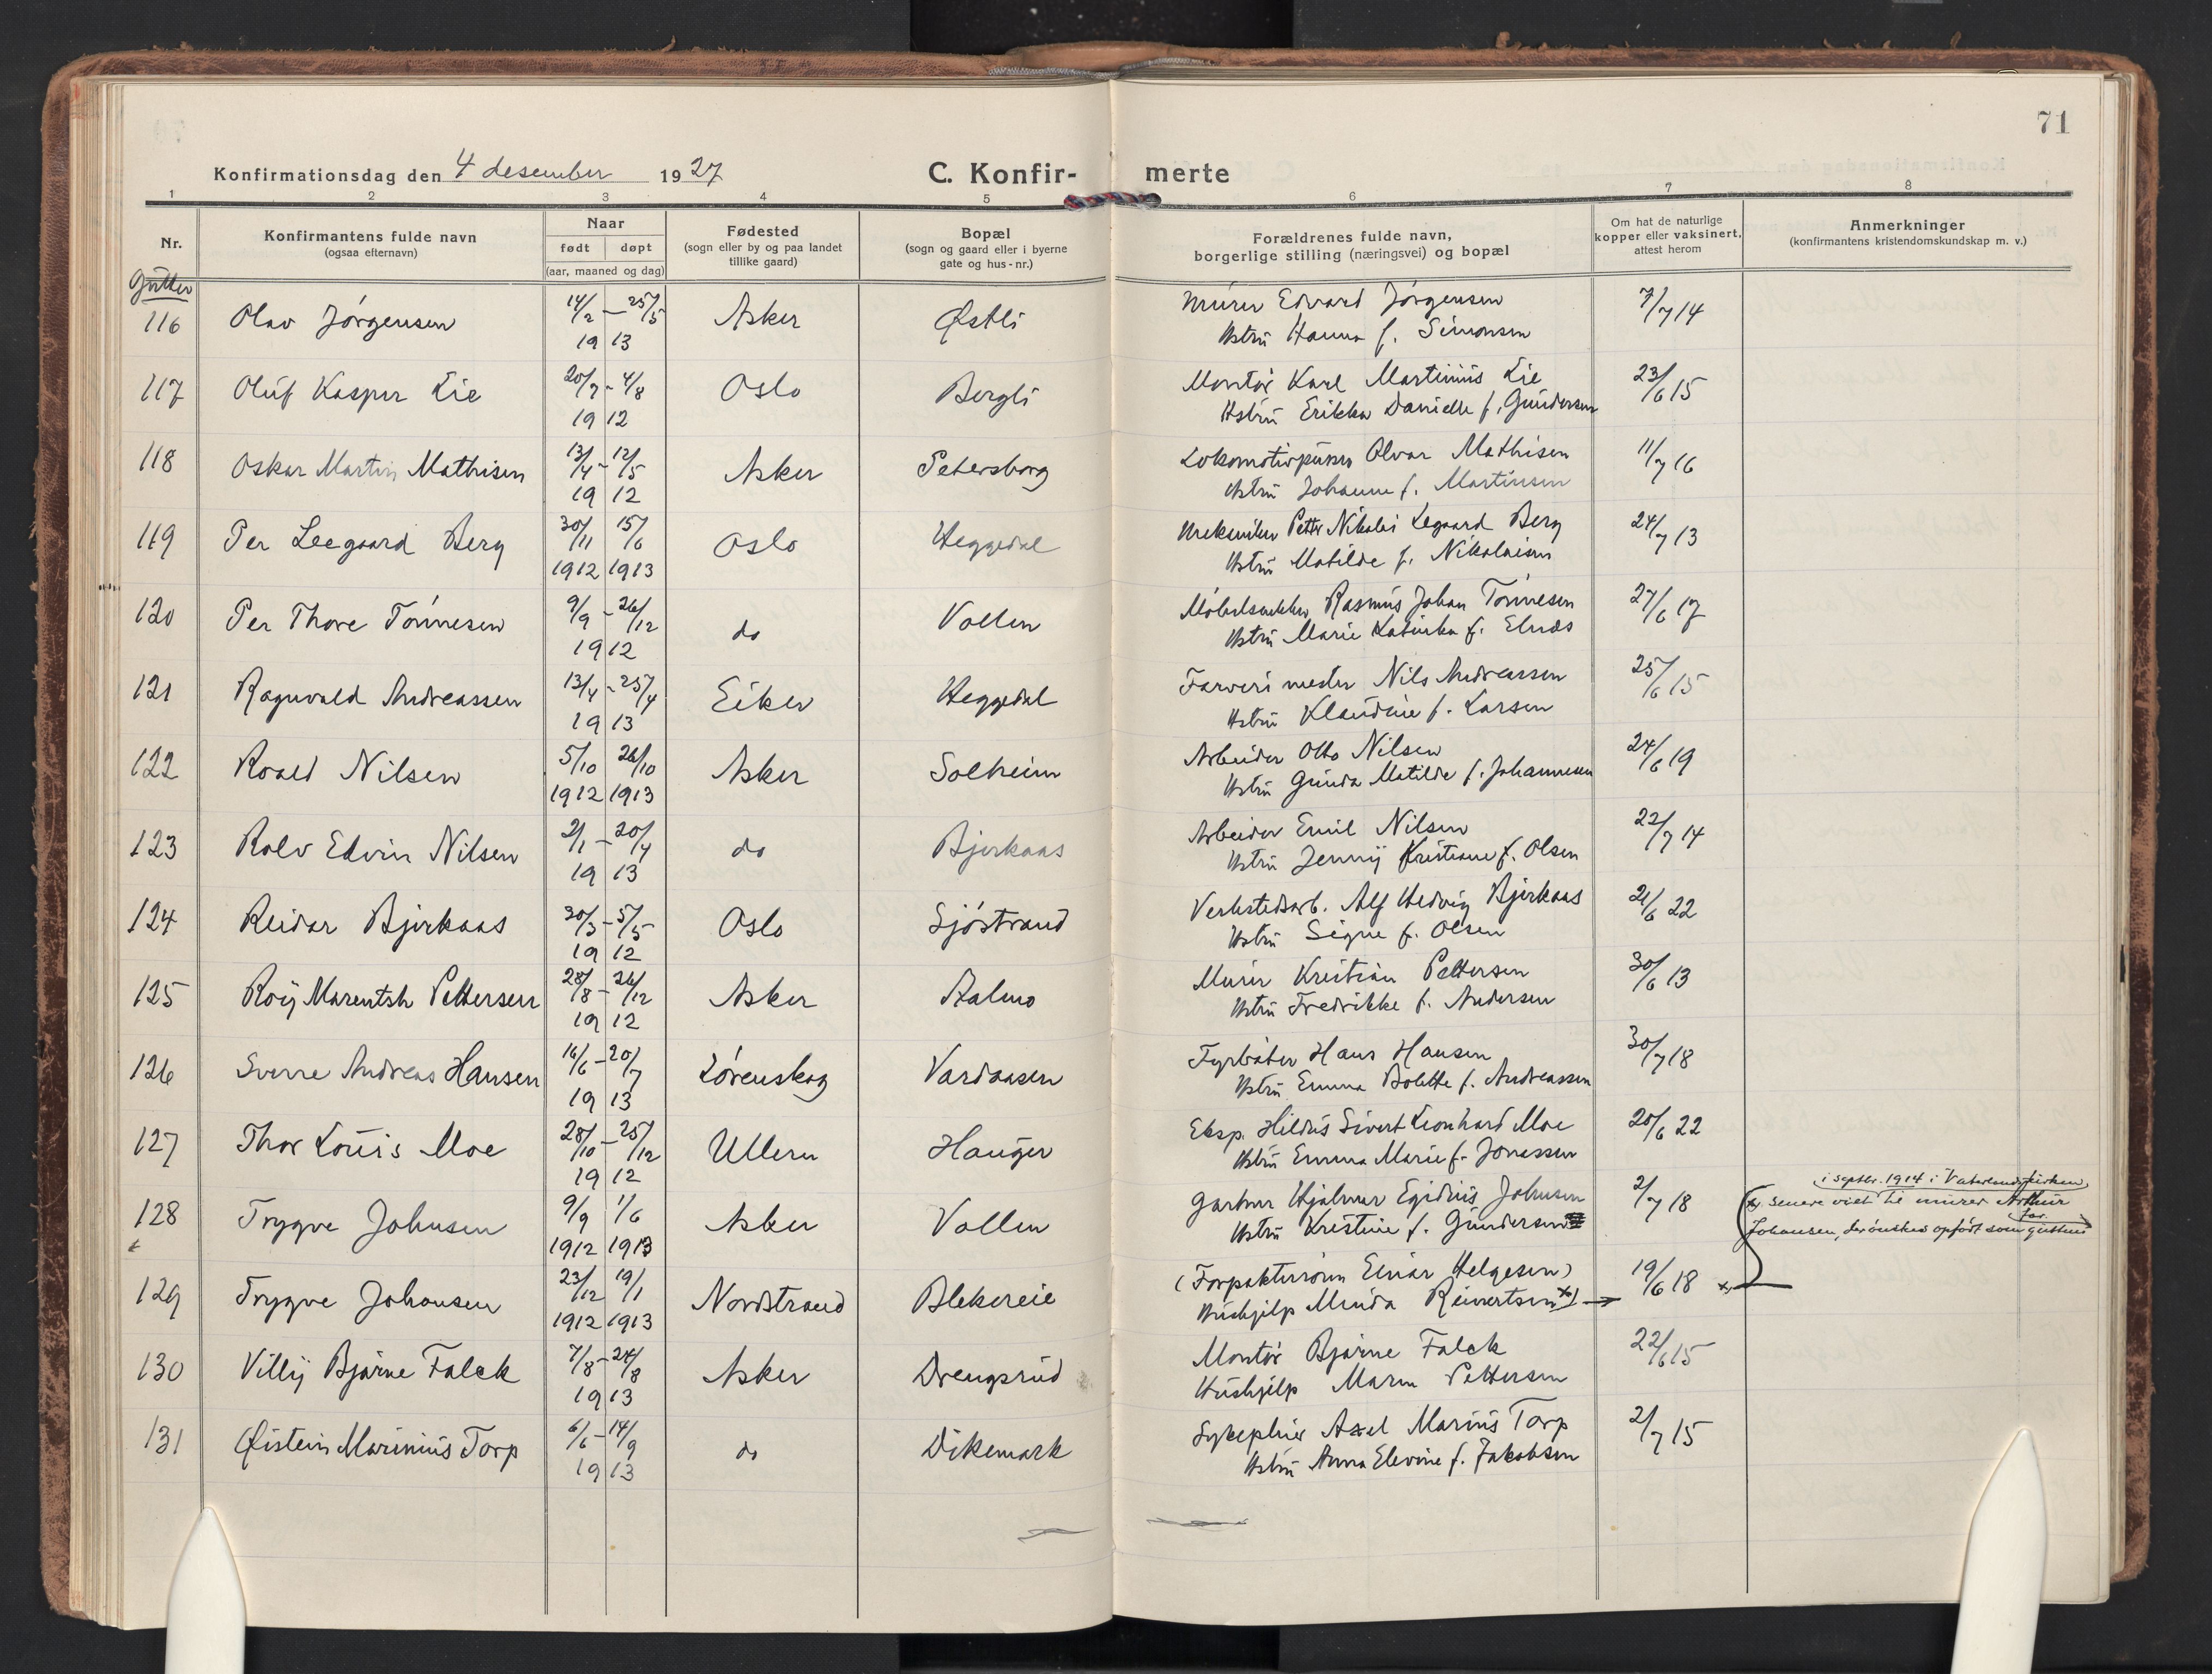 71
Konfirmationsdag den 4 desember 1927
C. Konfir-merte
1 2 3 4 5 6 7 8
Nr.
Konfirmantens fulde navn
(ogsaa efternavn)
Naar
født døpt
(aar, maaned og dag)
Fødested
(sogn eller by og paa landet
tillike gaard)
Bopæl
(sogn og gaard eller i byerne
gate og hus-nr.)
Forældrenes fulde navn,
borgerlige stilling (næringsvei) og bopæl
Om hat de naturlige
kopper eller vaksinert,
attest herom
Anmerkninger
(konfirmantens kristendomskundskap m. v.)
Gutter
116 Olav Jörgensen 14/2 – 25/5 1913 Asker Østli Murer Edvard Jörgensen 7/7 14
Hstru Hanna f. Simonsen
117 Oluf Kasper Lie 20/7 - 4/8 1912 Oslo Bergli Montör Karl Martinius Lie 23/6 15
Hstru Erikka Danielle f. Gundersen
118 Oskar Martin Mathisen 13/4 - 12/5 1912 Asker Petersborg Lokomotivpusser Olvar Mathisen 11/7 16
Hstru Johanne f. Martinsen
119 Per Leegaard Berg 30/11 1912 15/6 1913 Oslo Heggedal Petter Nikolai Legaard Berg 24/7 13
Hstru Matilde f. Nikolaisen
120 Per Thore Tönnesen 9/9 - 26/12 1912 do Vollen Möbelsnekker Rasmus Johan Tönnesen 27/6 17
Hstru Marie Katinka f. Elnæs
121 Ragnvald Andreassen 13/4 - 25/4 1913 Eiker Heggedal Farverimester Nils Andreassen 25/6 15
Hstru Klaudine f. Larsen
122 Roald Nilsen 5/10 1912 26/10 1913 Asker Solheim Arbeider Otto Nilsen 24/6 19
Hstru Gunda Matilde f. Johannesen
123 Rolv Edvin Nilsen 2/1 - 20/4 1913 do Bjerkaas Arbeider Emil Nilsen 22/7 14
Hstru Jenny Kristiane f. Olsen
124 Reidar Bjerkaas 30/3 - 5/5 1912 Oslo Sjöstrand Verkstedsarb. Alf Hedvig Bjerkaas 21/6 22
Hstru Signe f. Olsen
125 Roy Marentsh Pettersen 28/8 - 26/12 1912 Asker Murer Kristian Pettersen 30/6 13
Hstru Fredrikke f. Andersen
126 Sverre Andreas Hansen 16/6 - 20/7 1913 Lörenskog Vardaasen Fyrböter Hans Hansen 30/7 18
Hstru Emma Bolette f. Andreassen
127 Thor Louis Moe 28/10 - 25/12 1912 Ullern Hauger Eksp. Hildus Sivert Leonhard Moe 20/6 22
Hstru Emma Marie f. Jonassen
128 Trygve Johnsen 9/9 1912 1/6 1913 Asker Vollen Gartner Hjalmar Egidius Johnsen 2/7 18
Hstru Kristine f. Gundersen
i septbr. 1914 i Vaterlandskirken
x). senere viet til murer Arthur
Johansen, der önskes opfört som guttens far.
129 Trygve Johansen 23/12 1912 19/1 1913 Nordstrand Blekereie (Forpakterssönn Einar Helgesen) 19/6 18 x)
Hushjelp Minda Reinertsen x) →
130 Villy Bjarne Falck 7/8 - 24/8 1913 Asker Drengsrud Montör Bjarne Falck 22/6 15
Hushjelp Maren Pettersen
131 Øistein Marinius Torp 6/6 - 14/9 1913 do Dikemark Sykepleier Axel Marius Torp 2/7 15
Hstru Anna Elevine f. Jakobsen